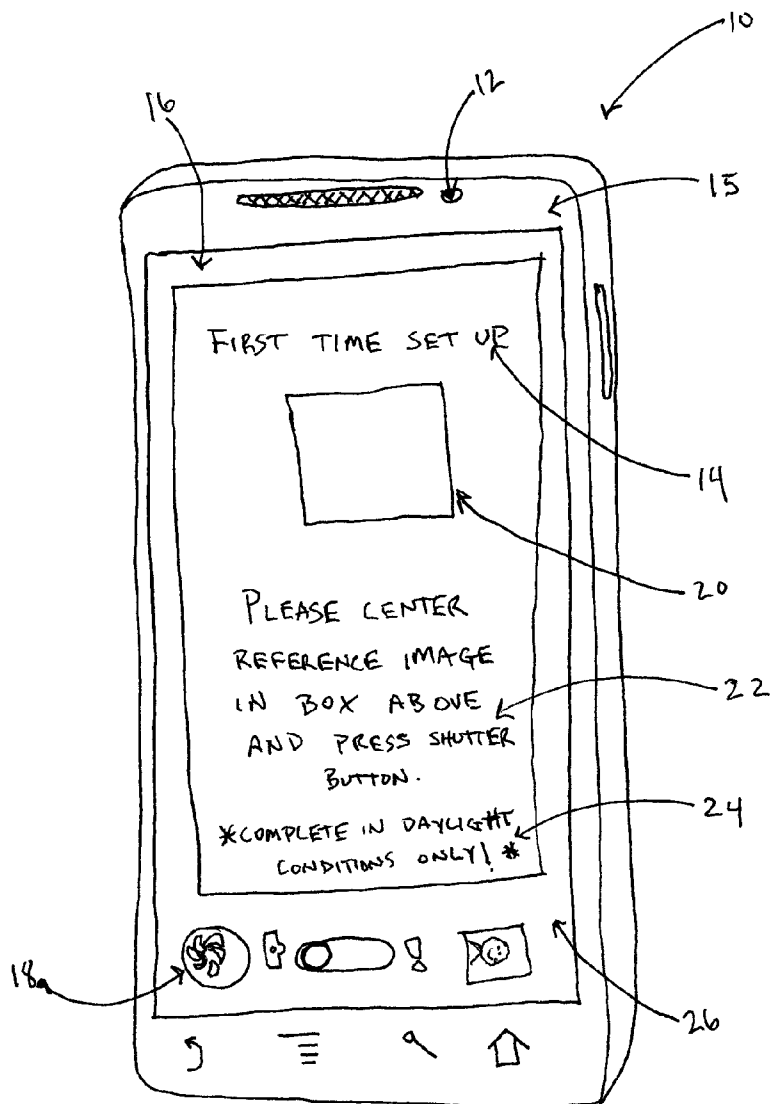 10
12
16
15
FIRST TIME SET UP
14
20
PLEASE CENTER
REFERENCE IMAGE
IN BOX ABOVE
22
AND PRESS SHUTTER
BUTTON.
24
*COMPLETE IN DAYLIGHT
CONDITIONS ONLY! *
18a
26